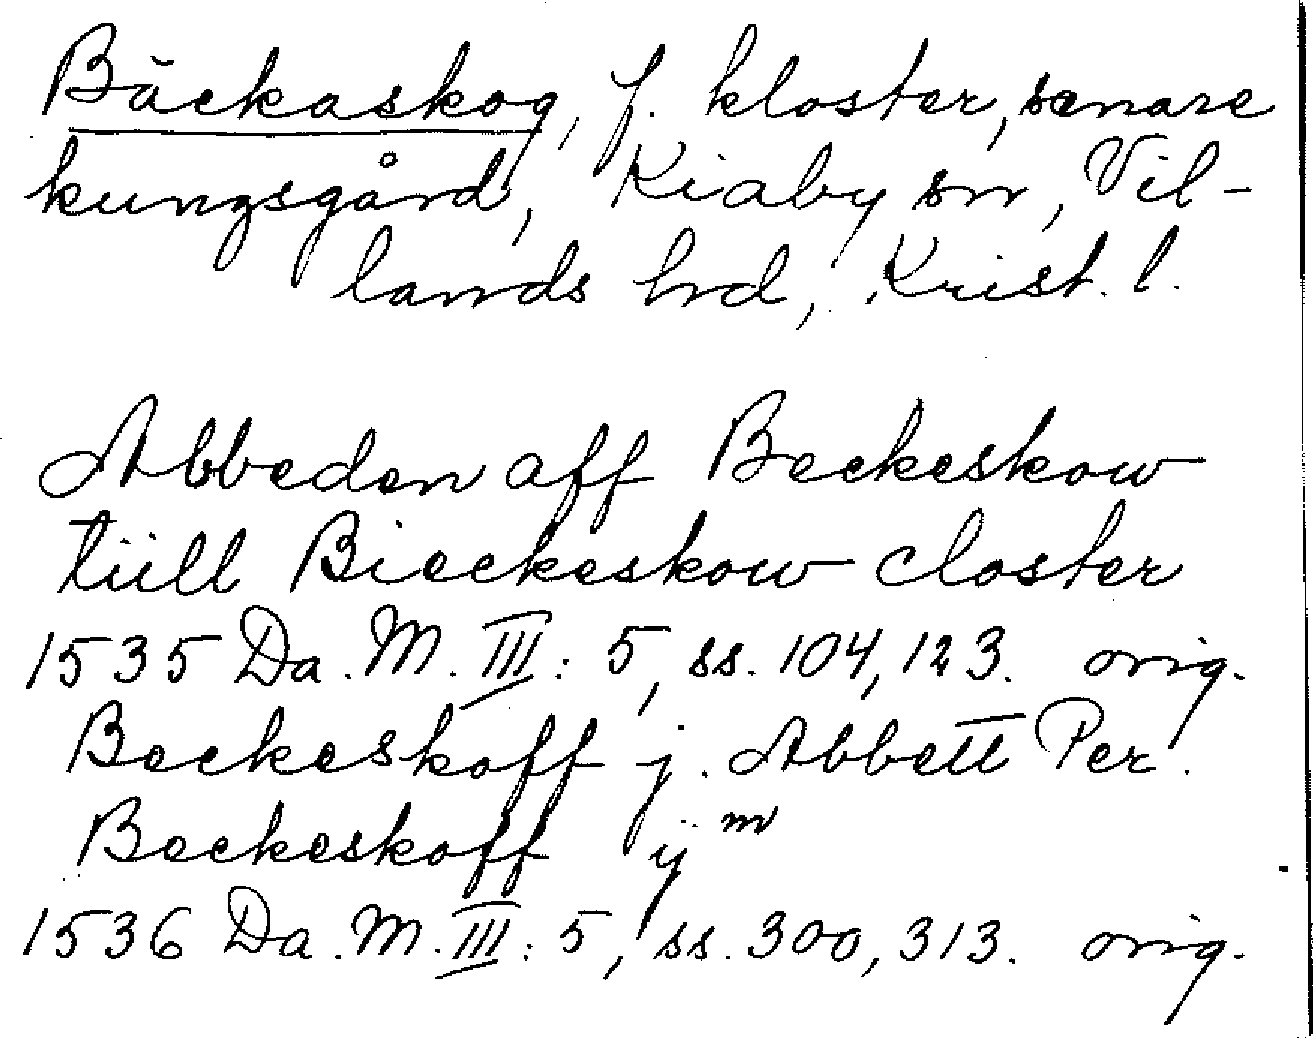 Bäckaskog, f. kloster, senare
kungsgård, Kiaby sn, Vil-
lands hd, Krist. l.
Abbeden aff Beckeskow
tiill Bieckeskow closter
1535 Da. M. III: 5, ss. 104, 123. orig.
Beckeskoff j. Abbett Per.
Beckeskoff ÿ m
1536 Da. M. III: 5, ss. 300, 313. orig.